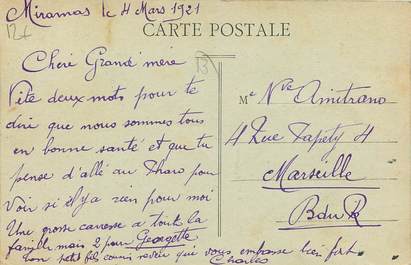 Miramas le 4 Mars 1921
12f
CARTE POSTALE
13
Chéré Grand'mère
Vite deux mots pour te
dire que nous sommes tous
en bonne santé et que tu
pense d'allé au Tharo pour
voir si il y a rien pour moi
Une grosse caresse a toute la
famille mais 2 pour Georgette
ton petit fils qui vous embrasse bien fort
Charles
Me Nve Amitrano
4 Rue Tapety 4
Marseille
B du R